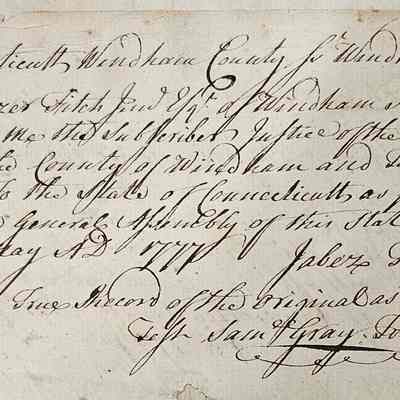 ticutt Windham County Ss Wind
zer Fitch Junr Esqr of Windham
me the Subscriber Justice of the
County of Windham and
To the State of Connecticutt as
General Assembly of this Stat
ay AD 1777 Jabez
True Record of the Original as
Test Samll Gray. To